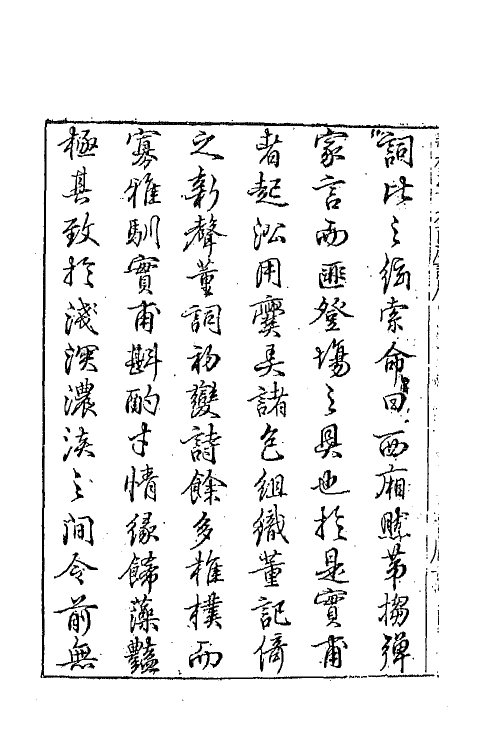 詞比之絃索命曰西廂然第搊彈
家言而匪登場之具也於是實甫
者起沿用爨弄諸色組織董記倚
之新聲董詞初變詩餘多椎樸而
寡雅馴實甫斟酌才情緣飾藻豔
極其致於淺深濃淡之間令前無